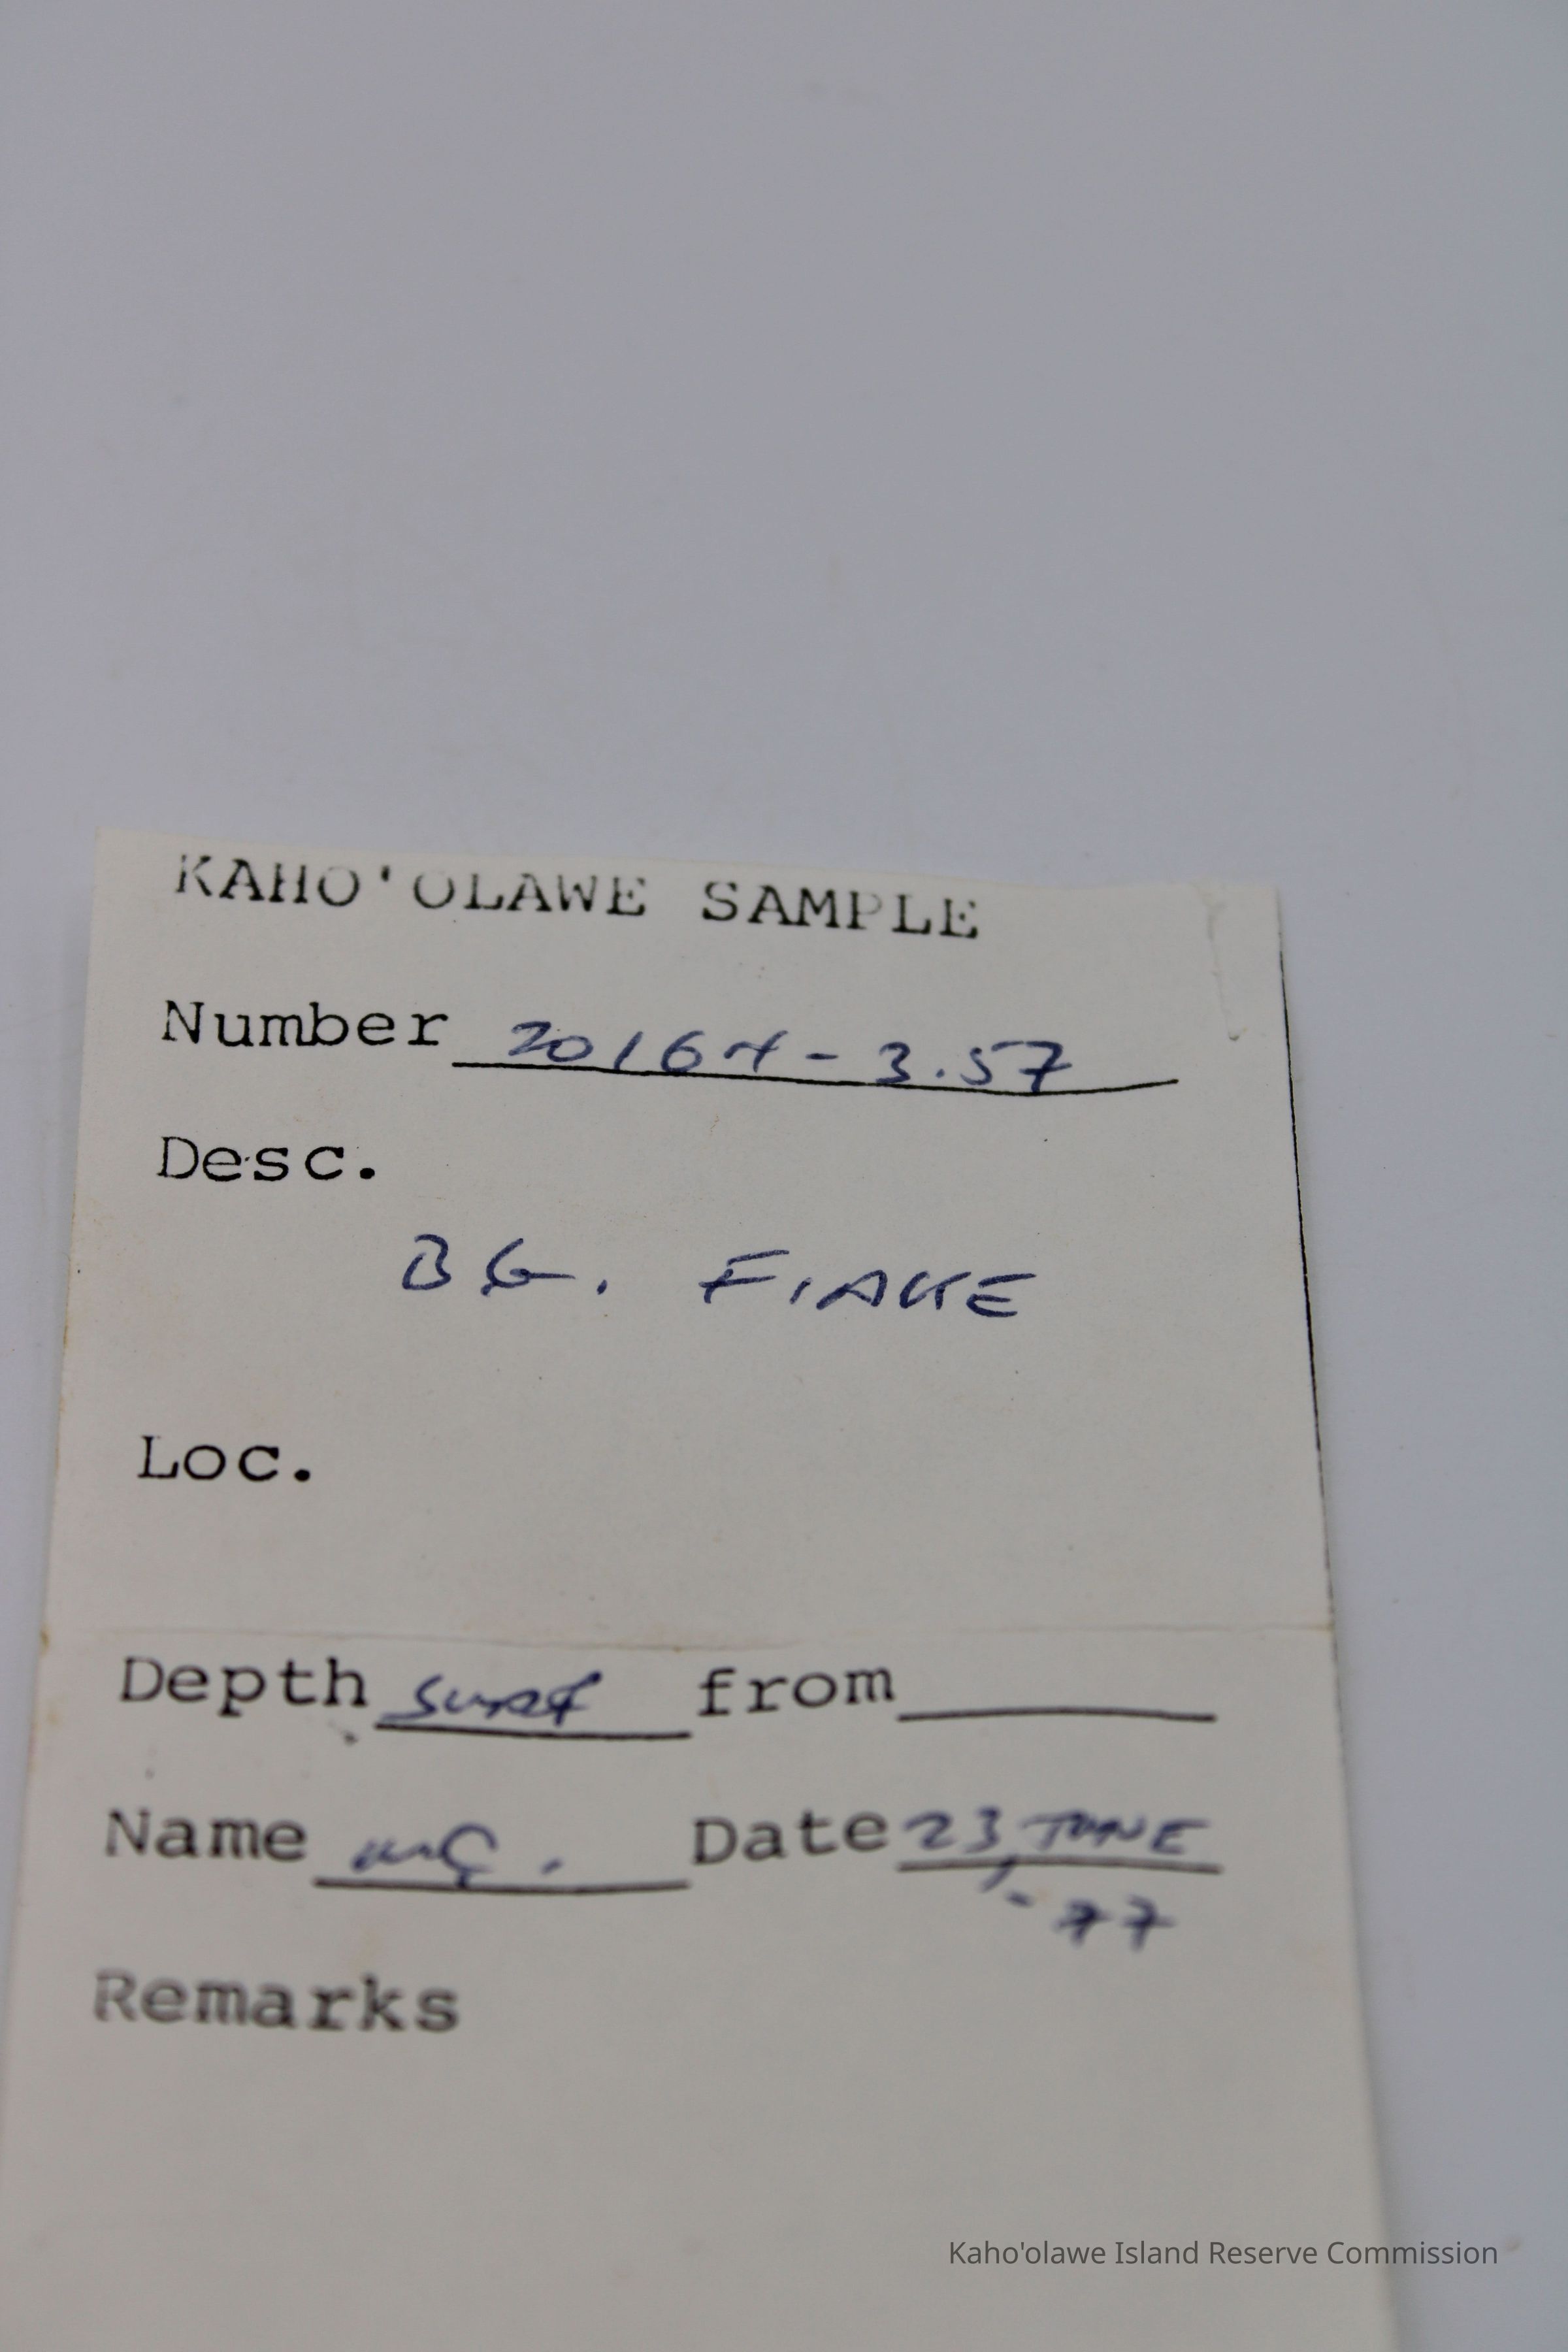 KAHO'OLAWE SAMPLE
Number 20164-3.57
Desc.
BG. FLAKE
Loc.
Depth surf from
Name Date 23 JUNE
-77
Remarks
Kaho'olawe Island Reserve Commission